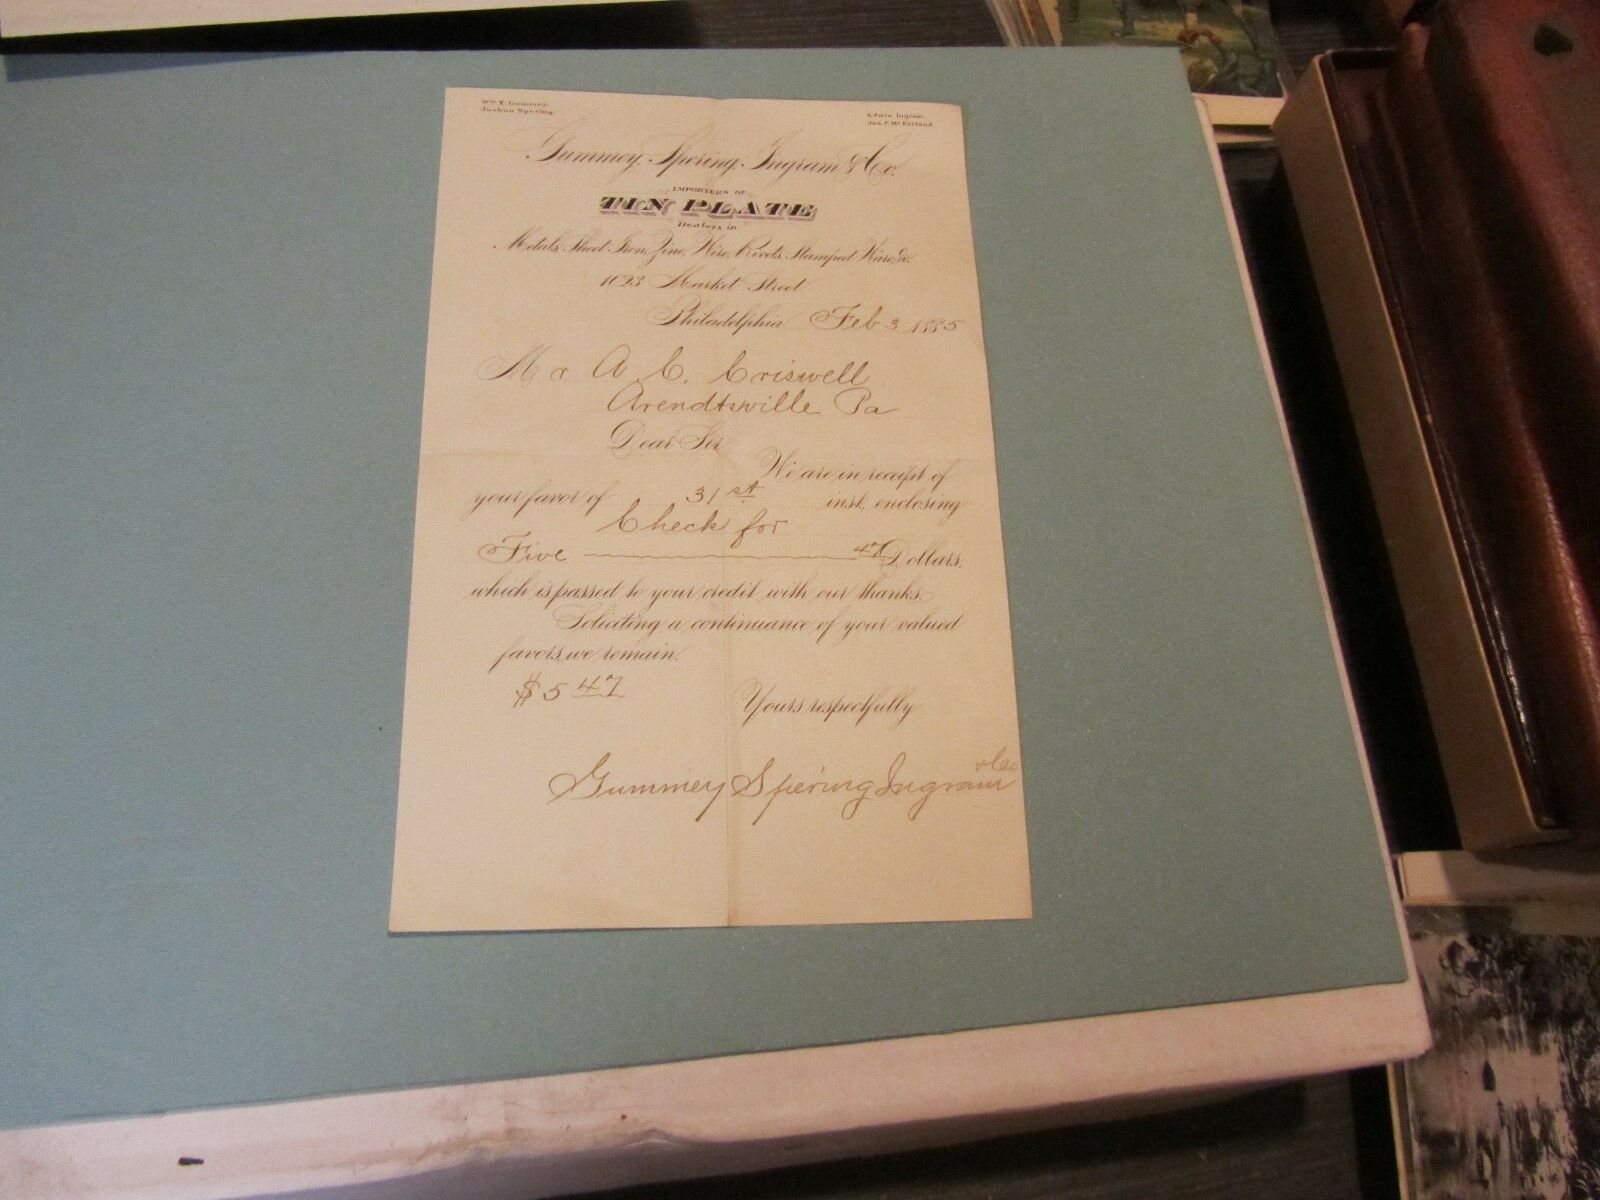 Wm. T. Gummey.
Joshua Spering
Edwin Ingram.
Jas. P. McFarland
Gummey, Spering, Ingram & Co.
IMPORTERS OF
TIN PLATE
Dealers in
Metals, Sheet Iron, Zinc, Wire, Rivets, Stamped Ware, &c.
1023 Market Street
Philadelphia Feb 3 1885
Mr A. C. Criswell
Arendtsville Pa
Dear Sir
We are in receipt of
your favor of 31st inst, enclosing
Check for
Five 47 Dollars,
which is passed to your credit with our thanks.
Soliciting a continuance of your valued
favors, we remain.
$5 47
Yours respectfully
Gummey Spering Ingram & Co